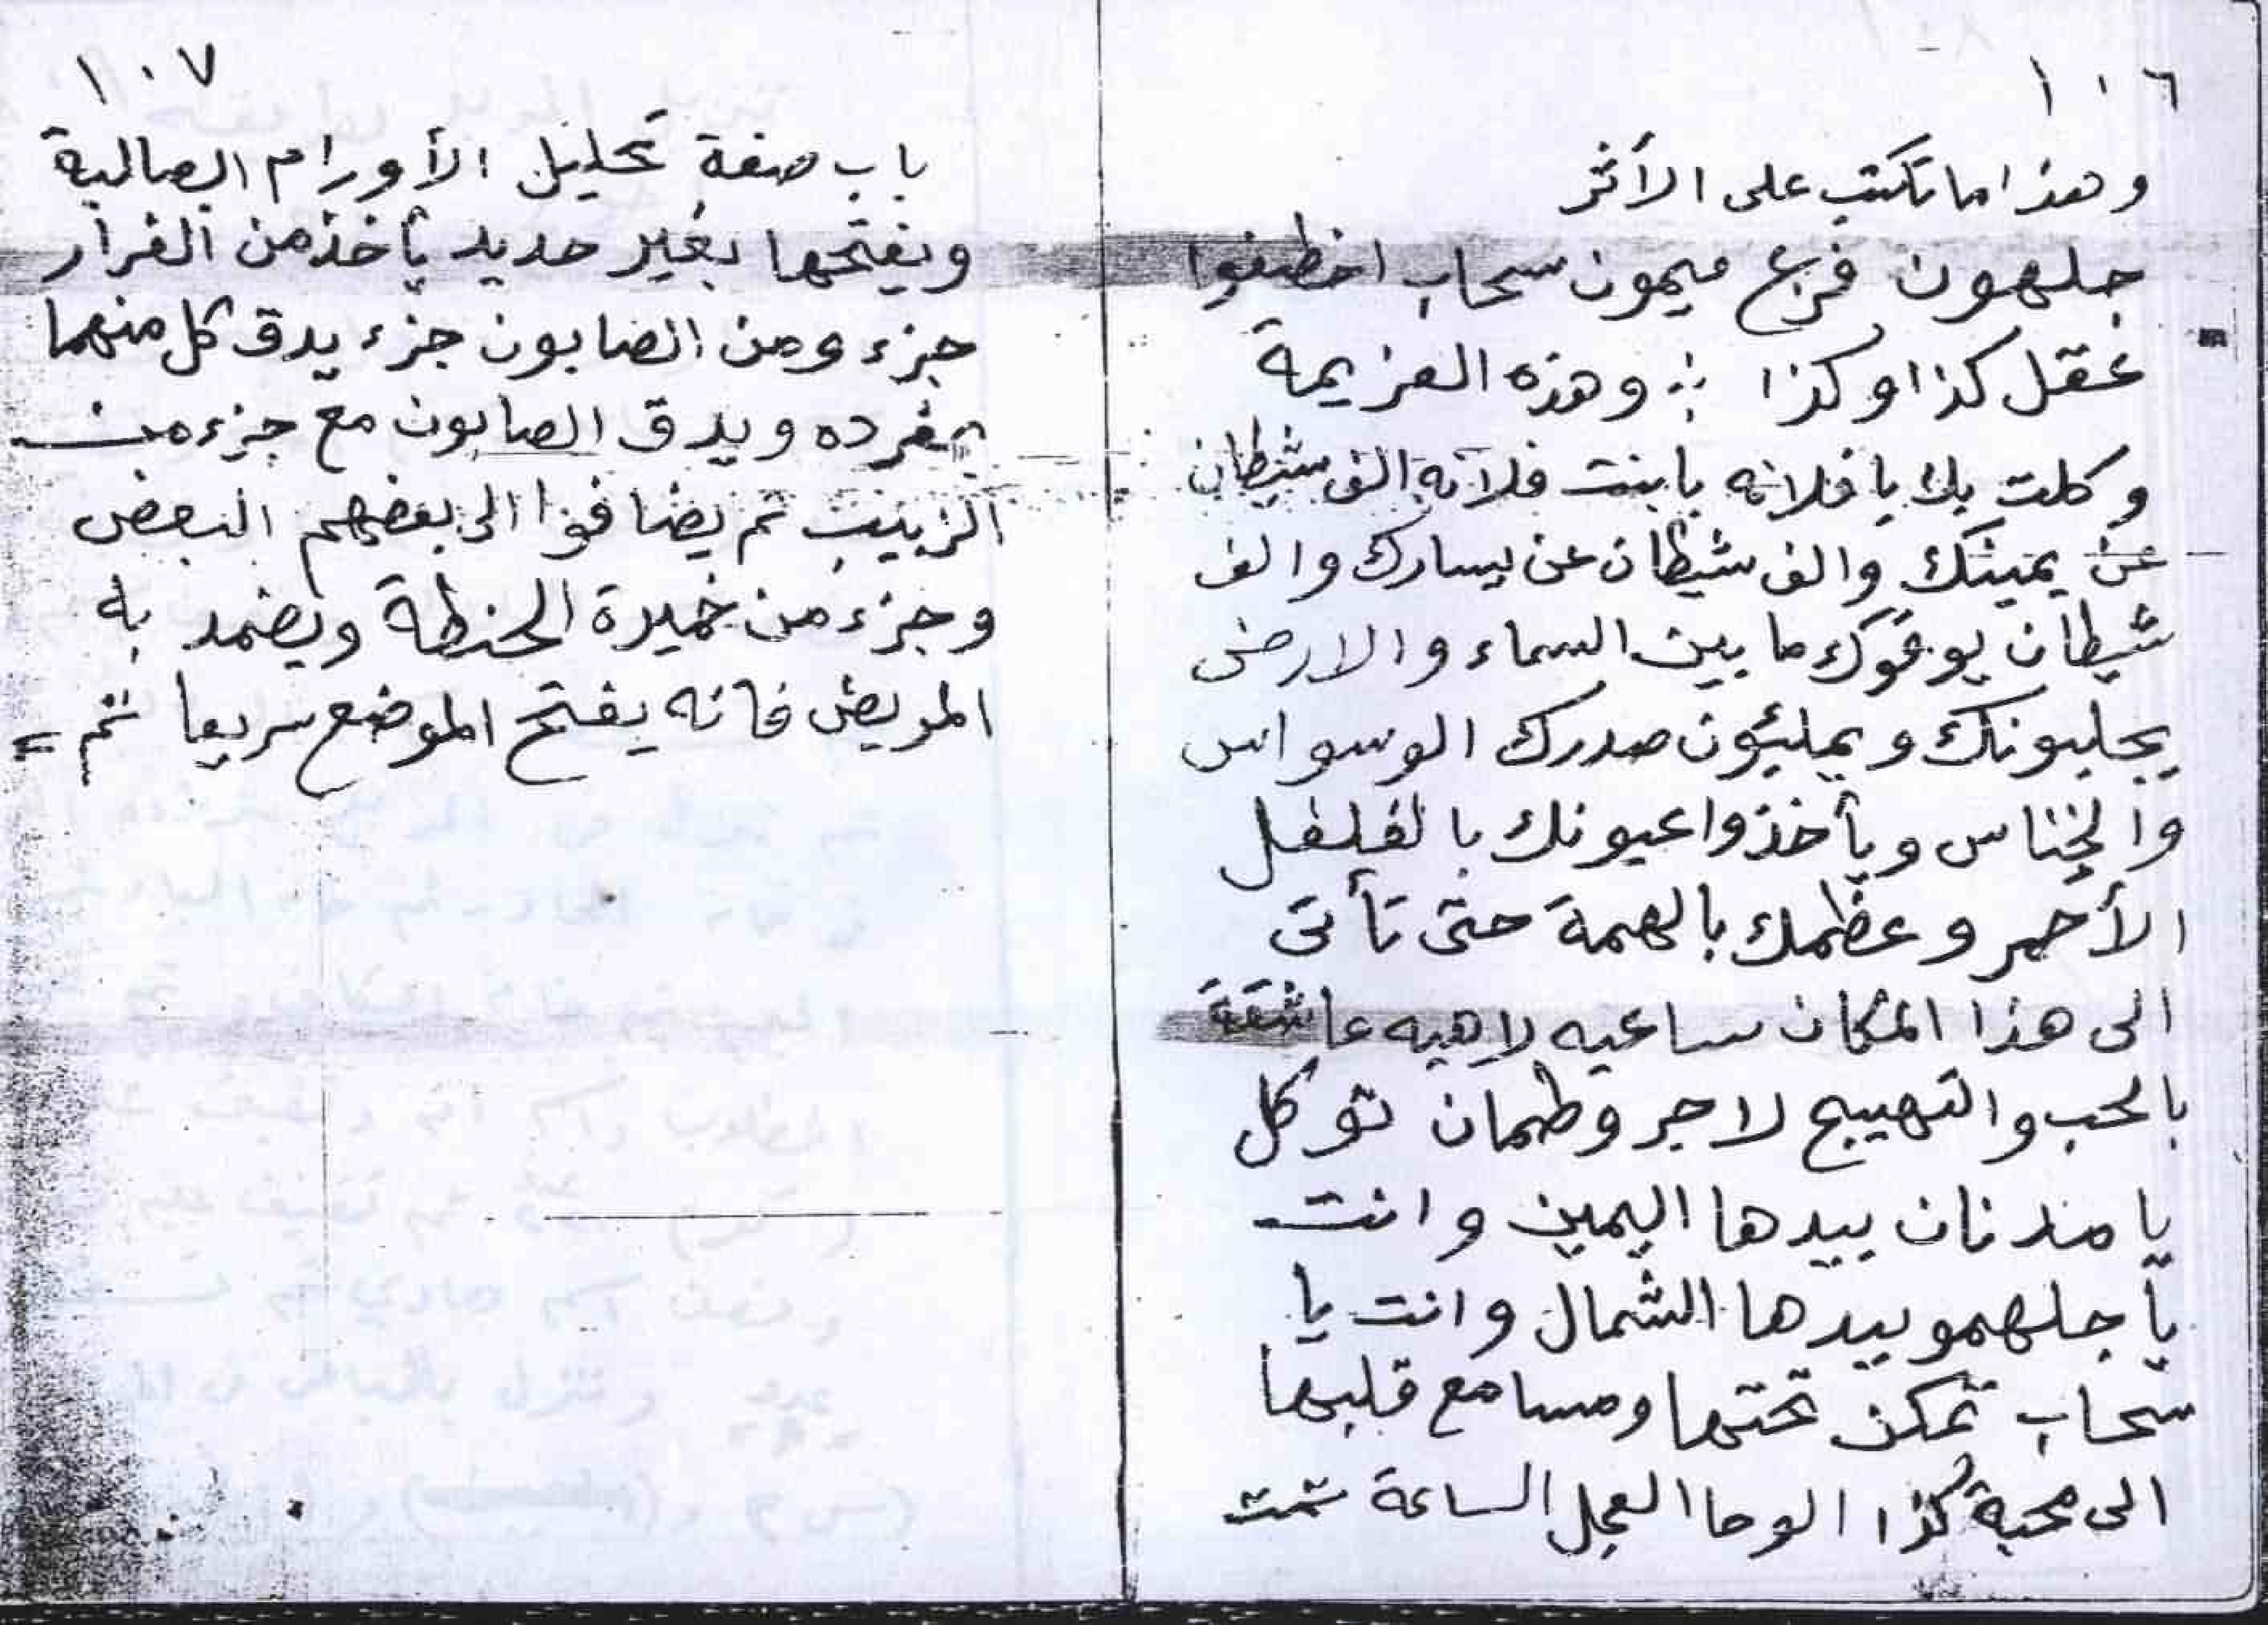 ١٠٦
وهذا ما تكتب على الأثر
جلهون فزع ميمون سحاب اخطفوا
عقل كذا وكذا وهذه العزيمة
وكلت بك يا فلانه يا بنت فلانه الف شيطان
عن يمينك والف شيطان عن يسارك والف
شيطان يوفوك ما بين السماء والارض
يجلبونك ويمليئون صدرك الوسواس
والخناس ويأخذوا عيونك بالفلفل
الأحمر وعظمك بالهمة حتى تأتى
الى هذا المكان ساعيه لاهيه عاشقة
بالحب والتهييج لاجر وطمان توكل
يا مندنان بيدها اليمين وانت
يا جلهمو بيدها الشمال وانت يا
سحاب تمكن تحتها ومسامع قلبها
الى محبة كذا الوحا العجل الساعة تمت
١٠٧
باب صفة تحليل الأورام الصالبة
ويفتحها بغير حديد يأخذ من الفرار
جزء ومن الصابون جزء يدق كل منهما
بمفرده ويدق الصابون مع جزء من
الزبيب ثم يضافوا الى بعضهم البعض
وجزء من خميرة الحنطة ويضمد به
المريض فانه يفتح الموضع سريعا تم =